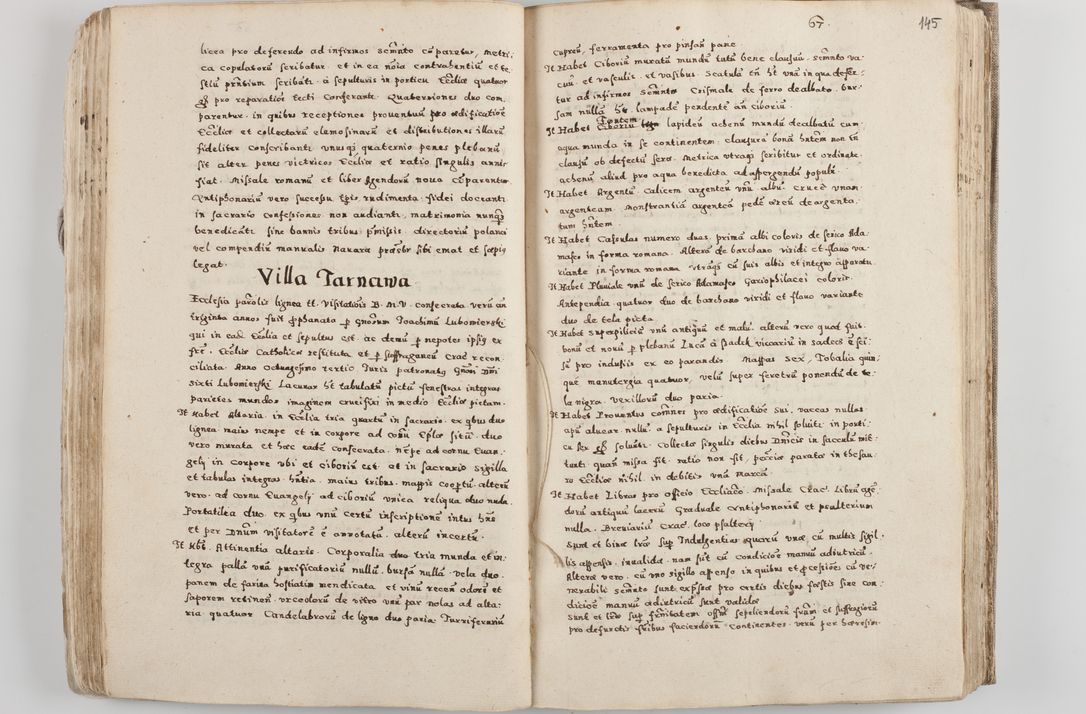 licea pro deferendo ad infirmos Semñto cõparetur, metri-
ca copulatorũ scribatur et in ea nõia contrahentiũ et te-
stiũ pñtium scribãt. à sepulturis in porticu Ecclię quatuor
gẽ pro reparatiõe tecti Conserantr. Quaterniones duo com-
parentur in quibus receptiones prouentuũ pro ædificatiõe
Ecclię et collectarũ elemosinarũ et distributiones illarũ
fideliter conscribantr unusq̃ quaternio penes plebanũ
sit alter penes victricos Ecclię et ratio singulis annis
fiat. Missale romanũ et liber Agendorũ noua cõparentur
Antiphonariũ vero successu tp̃is rudimenta fidei doceantr
in sacrario confessiones non audiantr matrimonia nunq̃
benedicãtr sine bannis tribus p̃missis directoriũ polani
vel compendiũ manualis Nauarræ proc̃br sibi emat et sæpiq
legat.
Villa Tarnawa
Ecclesia parõlis lignea tt. Visitatiõis B. M. V. consecrata verũ an
triginta annos fuit p̱phanata p̱ Gñosum Joachimũ Lubomierski
qui in ead. Ecclia et sepultus est. ac demũ p̱ nepotes ipsiq ex
frẽ Ecclię Catholicæ restituta et p̱ suffraganeũ Crac. recon-
ciliata Anno octuagesimo tertio Juris patronatq Gñosi Dñi
Sixti Lubomierski Lacunar ht tabulatũ pictũ fenestras integras
parietes mundos imaginem crucifixi in medio Ecclię pictam.
It Habet Altaria in Ecclia tria quartũ in sacrario ex qbus duo
lignea maius nempe et in corpore ad cornu Eplæ sitũ duo
vero murata et hæc eadẽ consecrata nẽpe ad cornu Euan-
gelij in corpore ubi et ciboriũ est et in sacrario Sigilla
et tabulas integras hñtia. maius tribus mappis coop̱tũ alterũ
vero ad cornu Euangelij ad ciboriũ unica reliqua duo nuda.
Portatilea duo ex qbus unũ certũ inscriptionẽ intus hñs
et per Dñum Visitatorẽ ẽ annotatũ alterũ incertũ.
It Hbt Attinentia altaris. Corporalia duo tria munda et in-
tegra pallã unã purificatoriũ nullũ bursã nullã Vela duo
panem de farina hostiatim mendicata et vinũ recẽñ odorẽ et
saporem retinen. urceolorũ de vitro unũ par nolas ad alta-
ria quatuor Candelabrorũ de ligno duo paria Turriferuriũ

67 145
cupreũ, ferramenta pro pinsañ pane
It Habet Ciboriũ muratũ mundũ tutũ bene clausũ. Semñto va-
cuũ et vasculis et vasibus. Scatulã tñ ht unã in qua defer-
tur ad infirmos Semñto Crismale de ferro dealbato. bur-
sam nullã ht. lampadẽ pendentẽ añ ciboriũ.
It Habet Fontem lapideũ ahenũ mundũ dealbatũ cum
aqua munda in se continentem clausura bonã hñtem non tñ
clausũ ob defectũ seræ. Metrica utraq scribitur et ordinate.
ahenũ aliud pro aqua benedicta ad aspergendũ populũ.
It Habet Argentũ Calicem argenteũ unũ albũ crucẽ unam
argenteam Monstrantiã argenteã pedẽ æreũ deargenta-
tum hñtem.
It Habet Casulas numero duas, prima albi coloris de serico Ada-
masco in forma romana. Alterã de barchano viridi et flauo va-
riante in forma romana utrasq cũ suis albis et integro apparatu
It Habet Pluuiale unũ de serico Adamasco Gariophilacei coloris.
Antependia quatuor duo de barchano viridi et flauo variante
duo de tela picta
It Habet Superpiliciũ unũ antiquũ et malũ alterũ vero quod fuit
bonũ et nouũ p̱ plebanũ Lucã à Psadek vicariũ in Sadecz ẽ fei-
sũ pro indusijs ex eo parandis Mappas sex, Tobalia quin-
que manutergia quatuor, velũ super feretrũ ponendũ de te-
la nigra, vexillorũ duo paria.
It Habet Prouentus comunes pro ædificatiõe sui. vaccas nullas
apũ aluear. nullũ à sepulturis in Ecclia nihil soluitr in porti-
cu sex gẽ soluitr. Collectæ singulis diebus Dñicis in sacculũ mit-
tuntr. quañ missa fit. ratio non fit, pecuñ paratæ in thesau-
ro Ecclię nihil. in debitis unã Marcã.
It Habet Libros pro officio Eccliaco. Missale Crac. Librũ age-
dorũ antiquũ lacerũ Graduale Antiphonariũ et psalterium
nulla. Breuiariũ Crac. loco psalterij
Sunt et binæ lræ sup Indulgentias quarũ una cũ multis sigil-
lis appensis inualida nam sũt cũ condiciõe manuũ adiutricũ.
Altera vero cũ uno sigillo appenso in quibus et p̱cessiões cũ ve-
nerabili Semñto sunt exp̱ssa pro certis diebus fæstis sine con-
diciõe manuũ adiutricũ sunt validæ
Sunt et lræ sup frñitatem offiũ sepeliendorũ frum et suffragiorũ
pro defunctis fribus faciendorũ continentes. verũ per hæresim